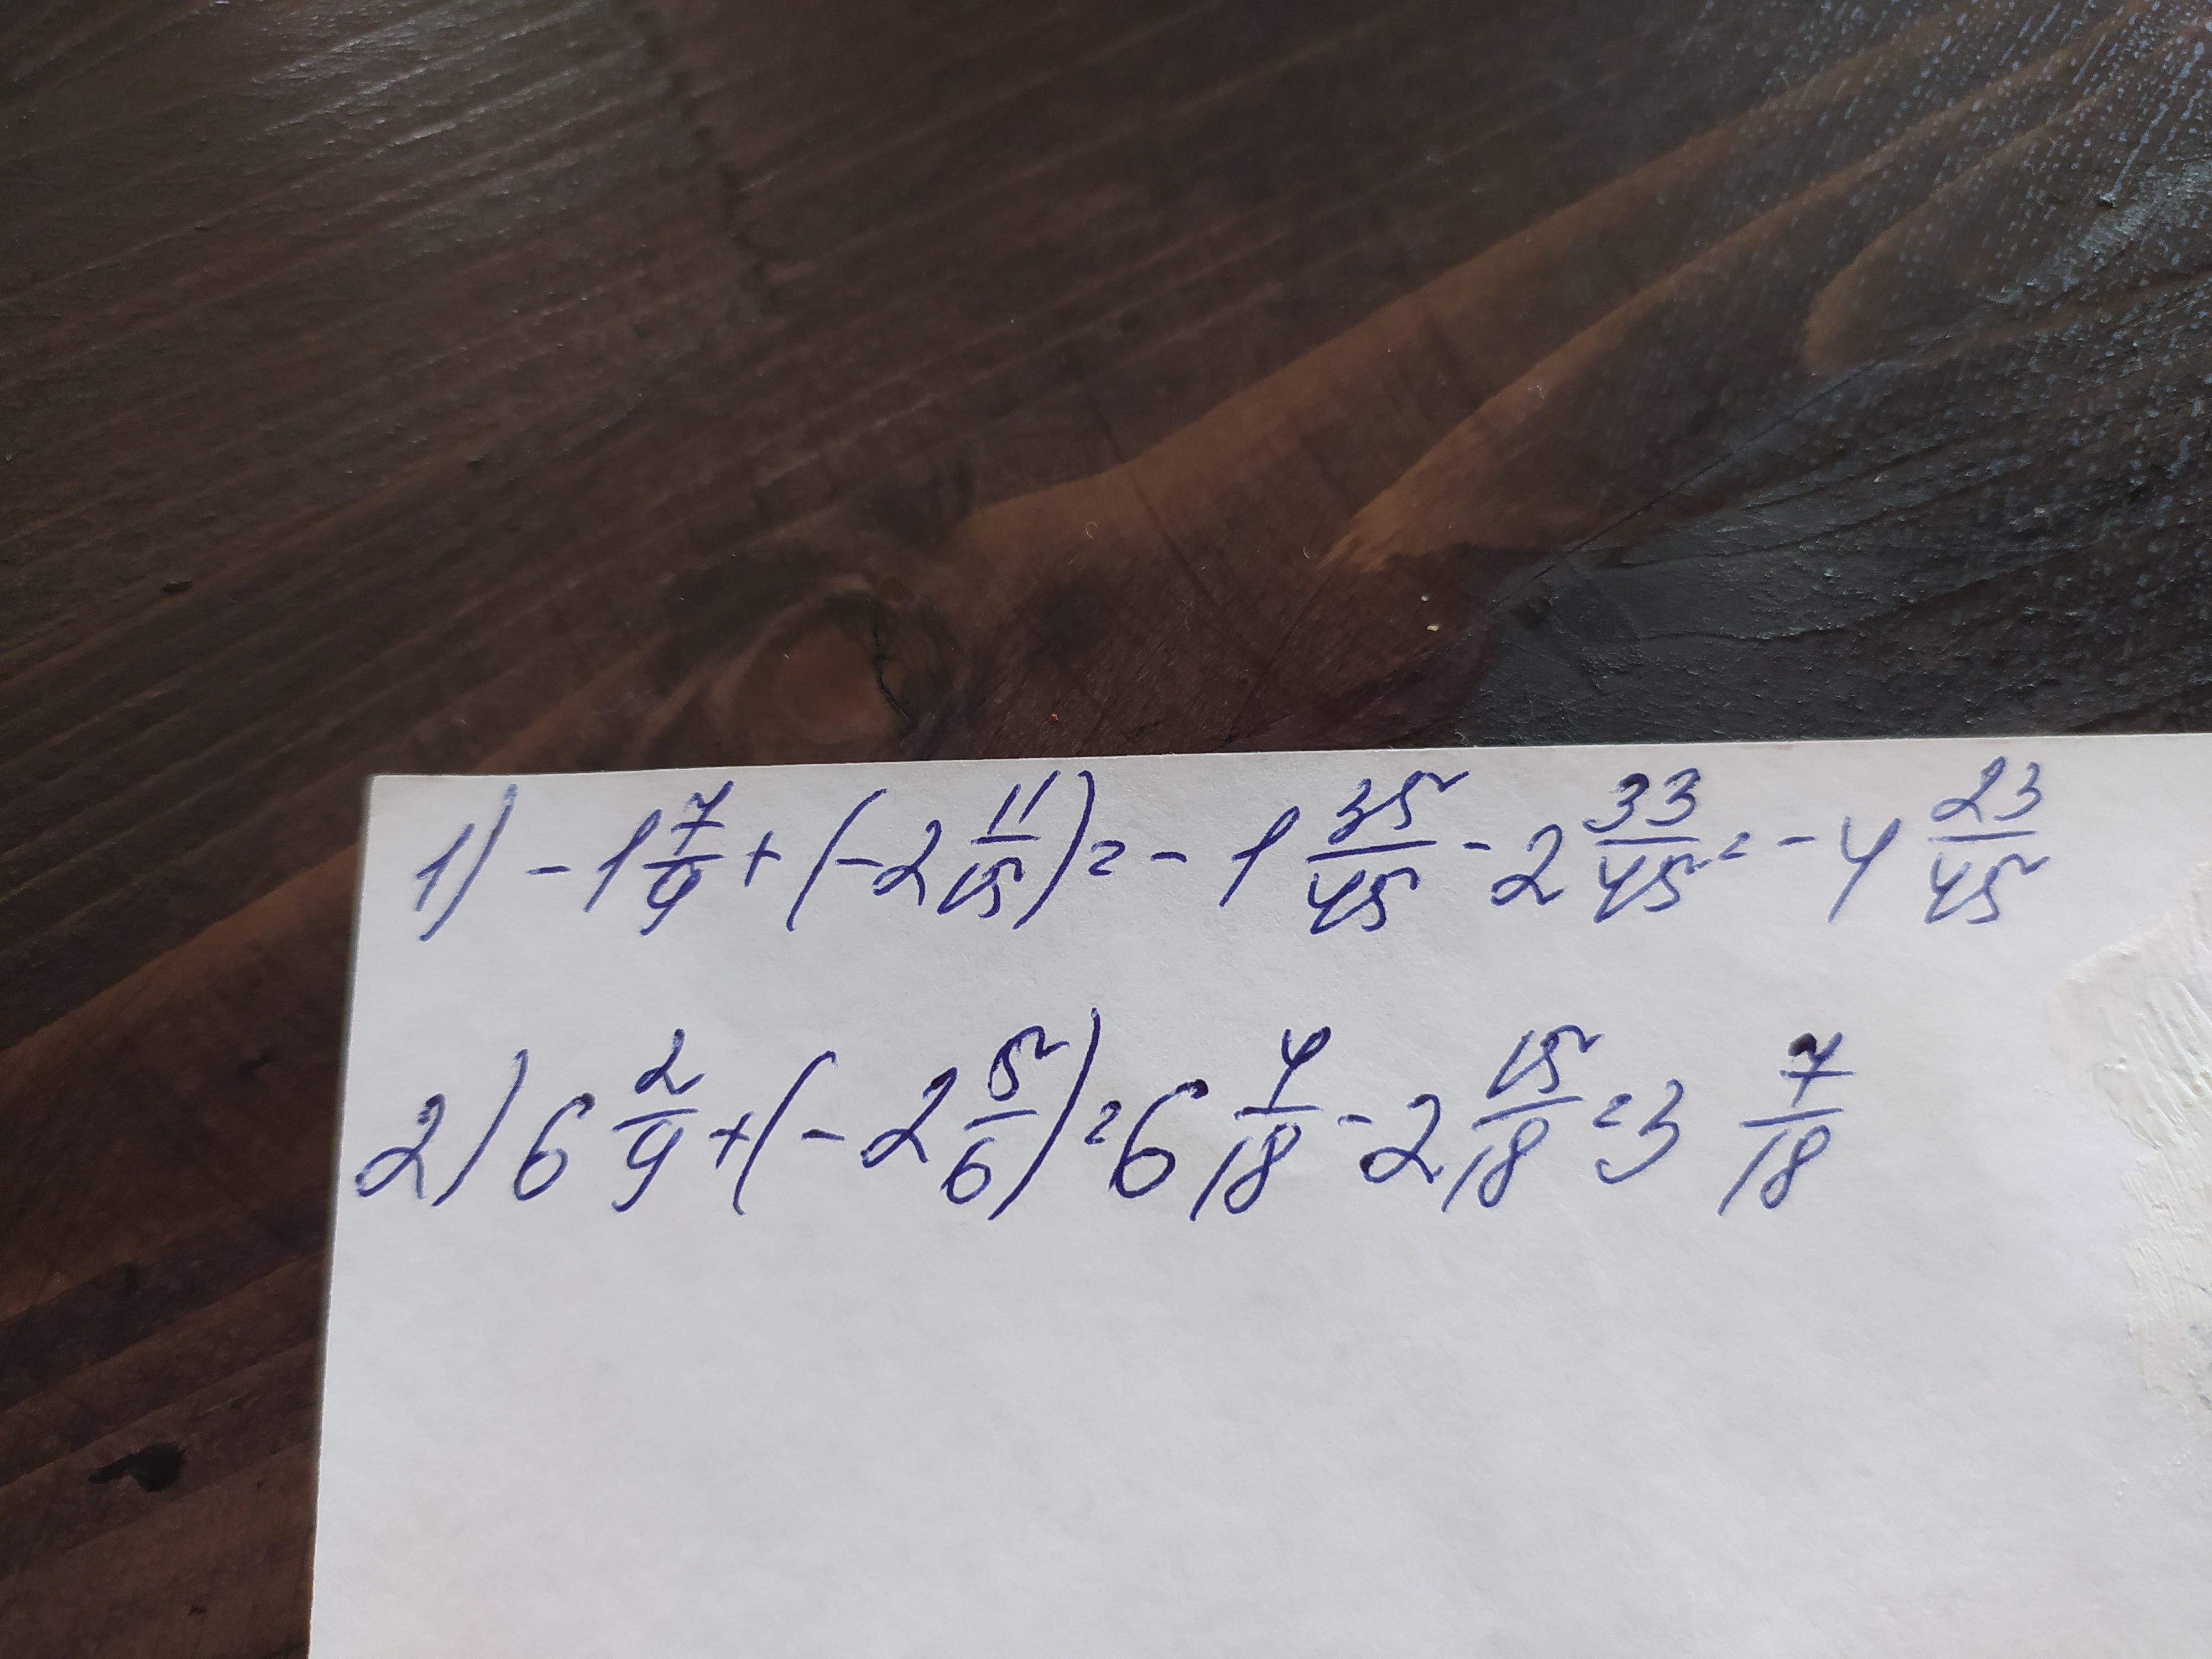 1) -1 7/9 + (-2 11/15) = -1 35/45 - 2 33/45 = -4 23/45
2) 6 2/9 + (-2 5/6) = 6 4/18 - 2 15/18 = 3 7/18